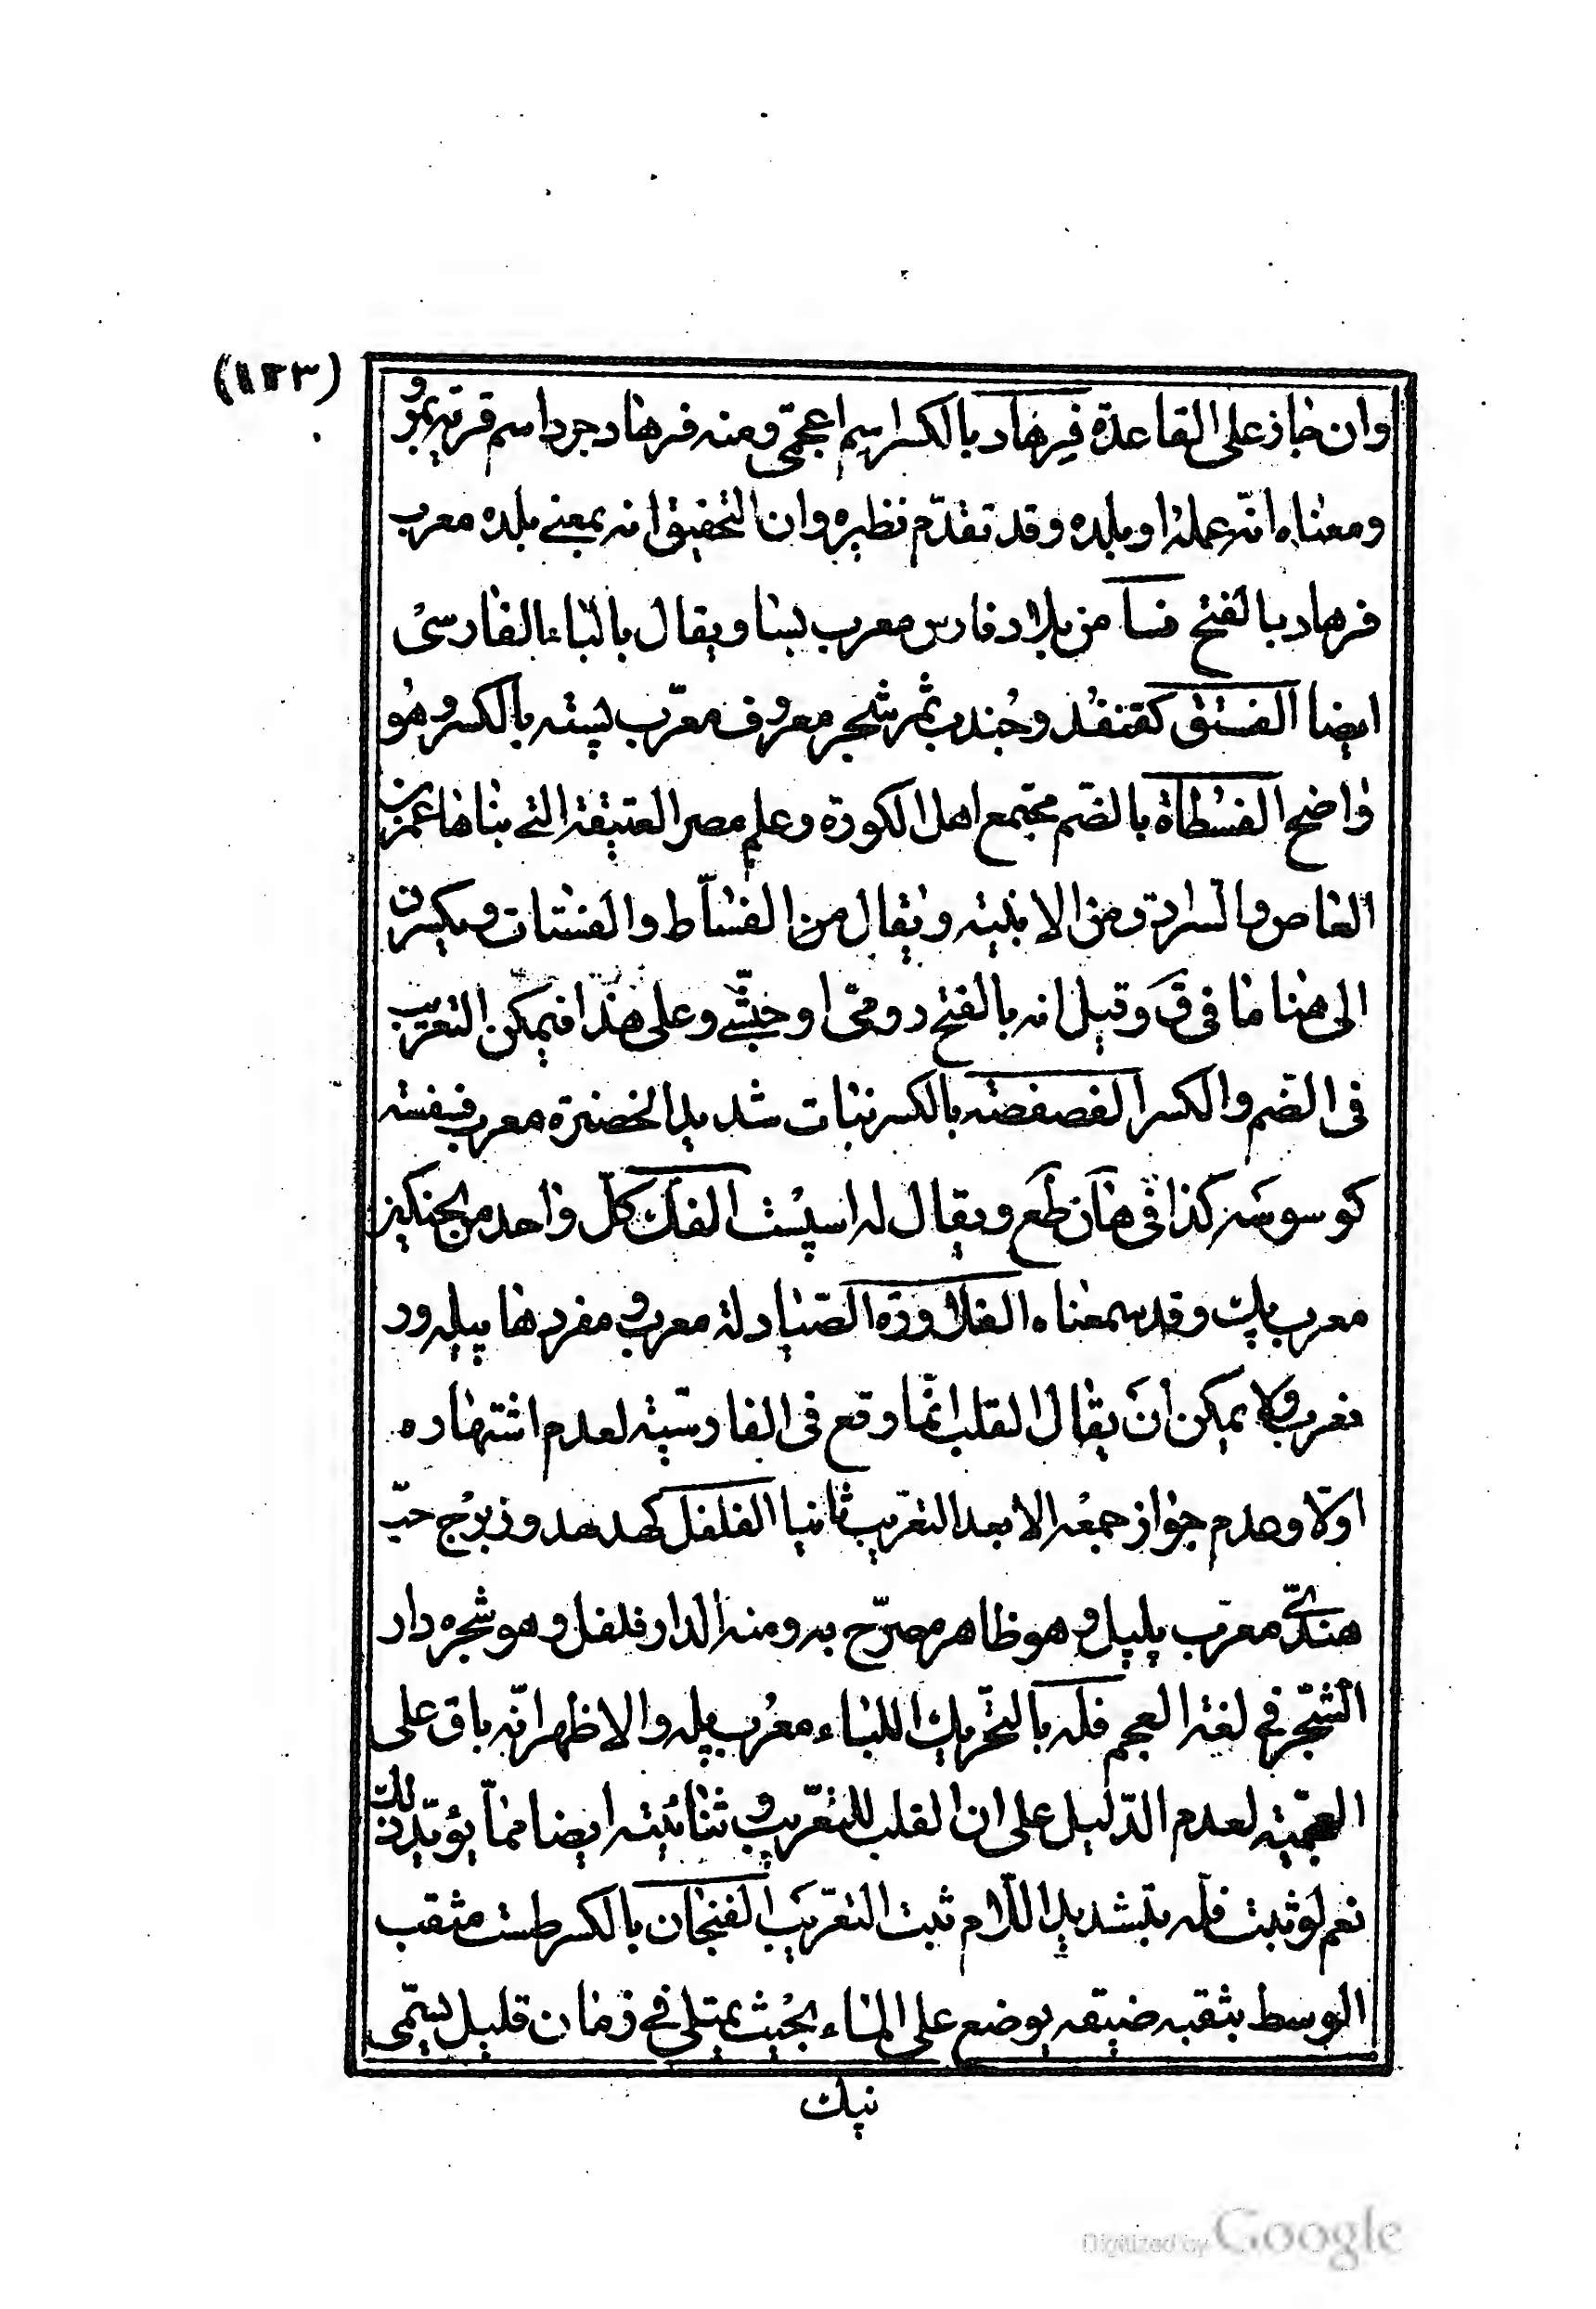 (١٢٣)
وان جاز على القاعدة فرهاد بالكسر اسم اعجمّى ومنه فرهاد جرد اسم قرية بمرو
ومعناه انّه عمله او بلده وقد تقدّم نظيره وان التحقيق انه بمعنى بلده معرب
فرهاد بالفتح فسا من بلاد فارس معرب بسا ويقال بالباء الفارسى
ايضا الفستق كقنفذ وجندب ثمر شجر معروف معرّب پسته بالكسر وهو
واضح الفسطاة بالضّم مجتمع اهل الكورة وعلم مصر العتيقة التى بناها عمرو بن
العاص والسرادق من الابنية ويقال من الفسّاط والفستات ويكسرن
الى هنا ما فى ق وقيل انه بالفتح رومىّ او حبشىّ وعلى هذا فيمكن التعريب
فى الضّم والكسر الفصفصة بالكسر نبات شديد الخضرة معرب فسفسته
كوسوسه كذا فى هان طع ويقال له اسپست الفك كلّ واحد من الجنكيز
معرب پك وقد بمعناه الفلاورة الصّيادلة معرب ومفردها پيله ور
معرب ولا يمكن ان يقال القلب انّما وقع فى الفارسيّة لعدم اشتهاره
اوّلا وعدم جواز جمعه الا بعد التعريب ثانيا الفلفل كهدهد وزبرج حبّ
هندىّ معرّب پلپل وهو ظاهر مصرّح به ومنه الدار فلفل وهو شجره دار
الشجر فى لغة العجم فله بالتحريك اللباء معرب پله والاظهر انّه باق على
العجميّة لعدم الدّليل على ان القلب للتعريب وثنائيته ايضا ممّا يؤيّد ذلك
نعم لو ثبت فلّه بتشديد اللّام ثبت التعريب الفنجان بالكسر طست مثقب
الوسط بثقبه ضيقه يوضع على الماء بحيث يمتلى فى زمان قليل يسمّى
نيك
Digitized by Google